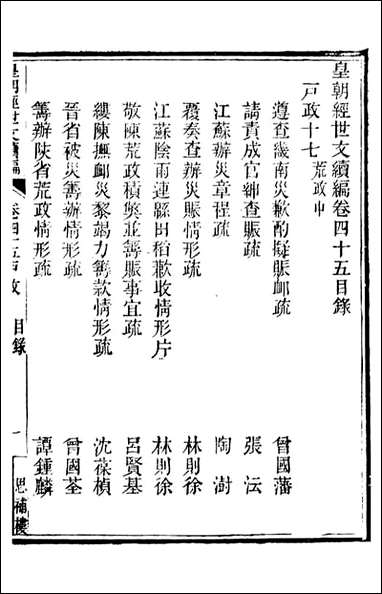 皇朝經世文續編卷四十五目錄
戶政十七 荒政中
遵查畿南災歉酌擬賑卹疏 曾國藩
請責成官紳查賑疏 張澐
江蘇辦災章程疏 陶澍
覆奏查辦災賑情形疏 林則徐
江蘇陰雨連緜田稻歉收情形片 林則徐
敬陳荒政積弊並籌賑事宜疏 呂賢基
縷陳撫卹災黎竭力籌款情形疏 沈葆楨
晉省被災籌辦情形疏 曾國荃
籌辦陝省荒政情形疏 譚鍾麟
皇朝經世文續編 卷四十五 戶政 目錄 一 思補樓